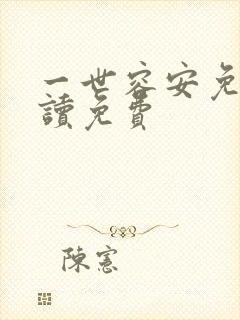 一世容安免
讀免費
陳憲